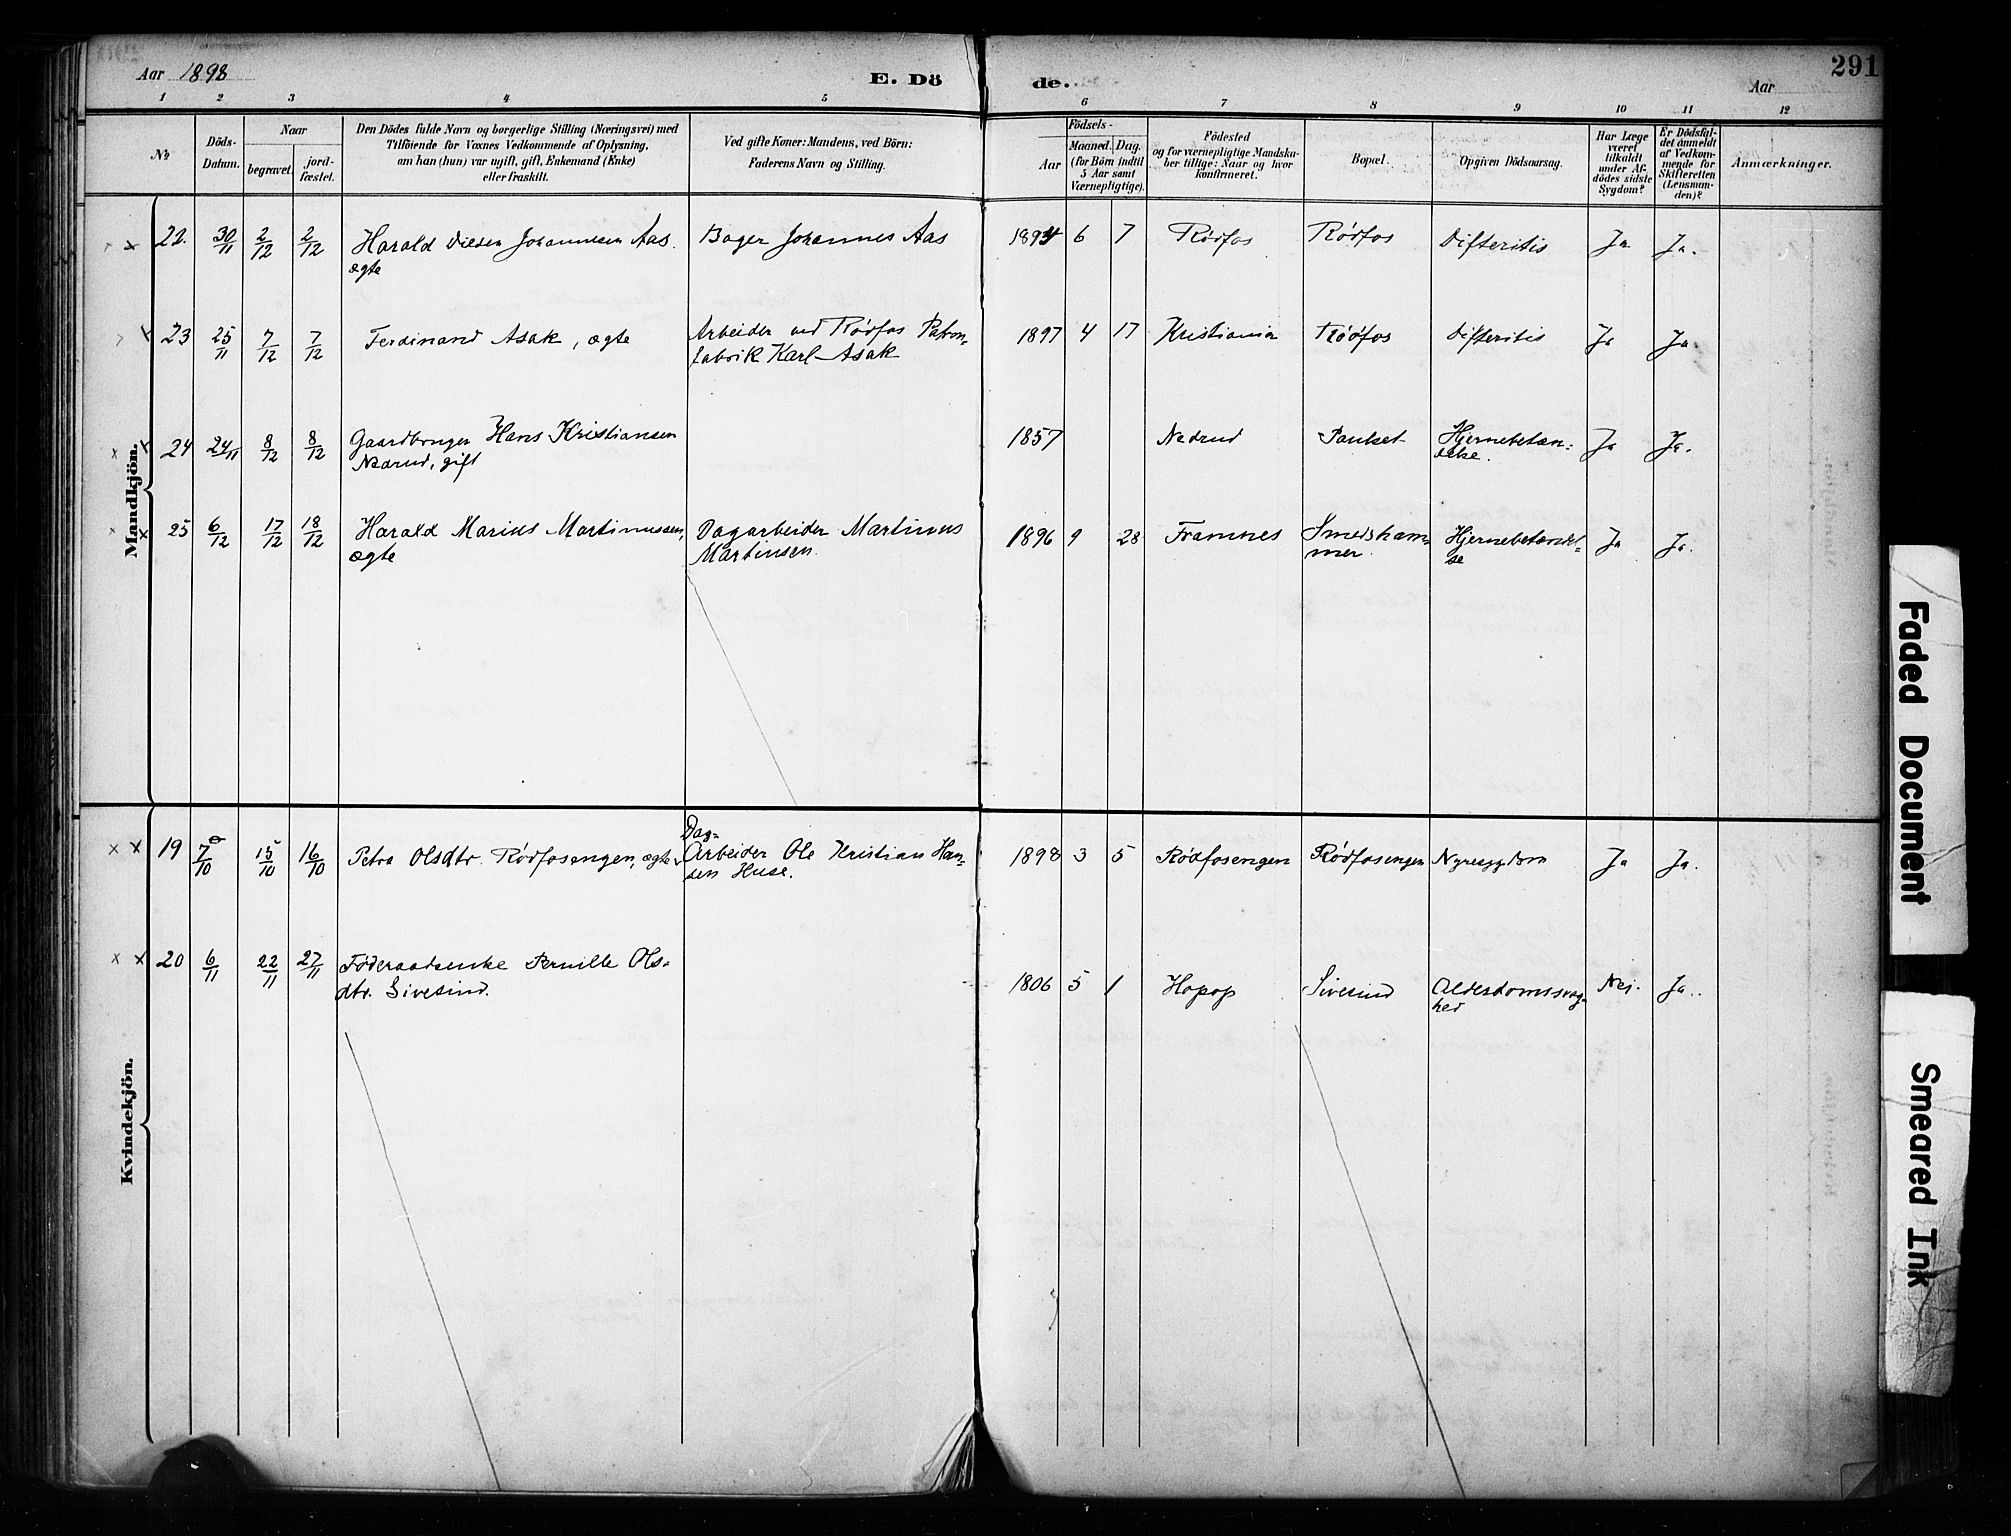 Aar 1898
E. Dö
de.
Aar
291
1 2 3 4 5 6 7 8 9 10 11 12
№
Döds-
Datum.
Naar
begravet.
jord-
fæstet.
Den Dödes fulde Navn og borgerlige Stilling (Næringsvei) med
Tilföiende for Voxnes Vedkommende af Oplysning,
om han (hun) var ugift, gift, Enkemand (Enke)
eller fraskilt.
Ved gifte Koner: Mandens, ved Börn:
Faderens Navn og Stilling.
Födsels-
Aar
Maaned. Dag.
(for Börn indtil
5 Aar samt
Værnepligtige).
Födested
og for værnepligtige Mandska-
ber tillige: Naar og hvor
konfirmeret.
Bopæl.
Opgiven Dödsaarsag.
Har Læge
været
tilkaldt
under Af-
dödes sidste
Sygdom?
Er Dödsfal-
det anmeldt
af Vedkom-
mende for
Skifteretten
(Lensman-
den)?
Anmærkninger.
Mandkjön.
22. 30/11 2/12 2/12 Harald Johannesen Aas. Bager Johannes Aas 6 7 Rödfos Rödfos Difteritis Ja Ja.
ægte
23 25/11 7/12 7/12 Ferdinand Asak, ægte Arbeider ved Rödfos Patron- 1897 4 17 Kristiania Rödfos Difteritis Ja Ja.
fabrik Karl Asak
24 24/11 8/12 8/12 Gaardbruger Hans Kristiansen 1857 Nedrud Pauket Hjernebetæn- Ja Ja.
gift
25 6/12 17/12 18/12 Harald Marius Martinussen, Dagarbeider Martinus 1896 9 28 Framnes Smedsham- Hjernebetændel- Ja Ja.
ægte Martinsen. mer. se
Kvindekjön.
Dag-
19 7/10 15/10 16/10 Petra Olsdtr. Rödfosengen, ægte Arbeider Ole Kristian Han- 1898 3 5 Rödfosengen Rödfosengen Nyresygdom Ja Ja.
sen Huse.
20 6/11 22/11 27/11 Föderaadsenke Pernille Ols-
dtr. Sivesind. 1806 5 1 Hopop Sivesind Alderdomssvag- Nei. Ja.
hed
Faded Document
Smeared Ink